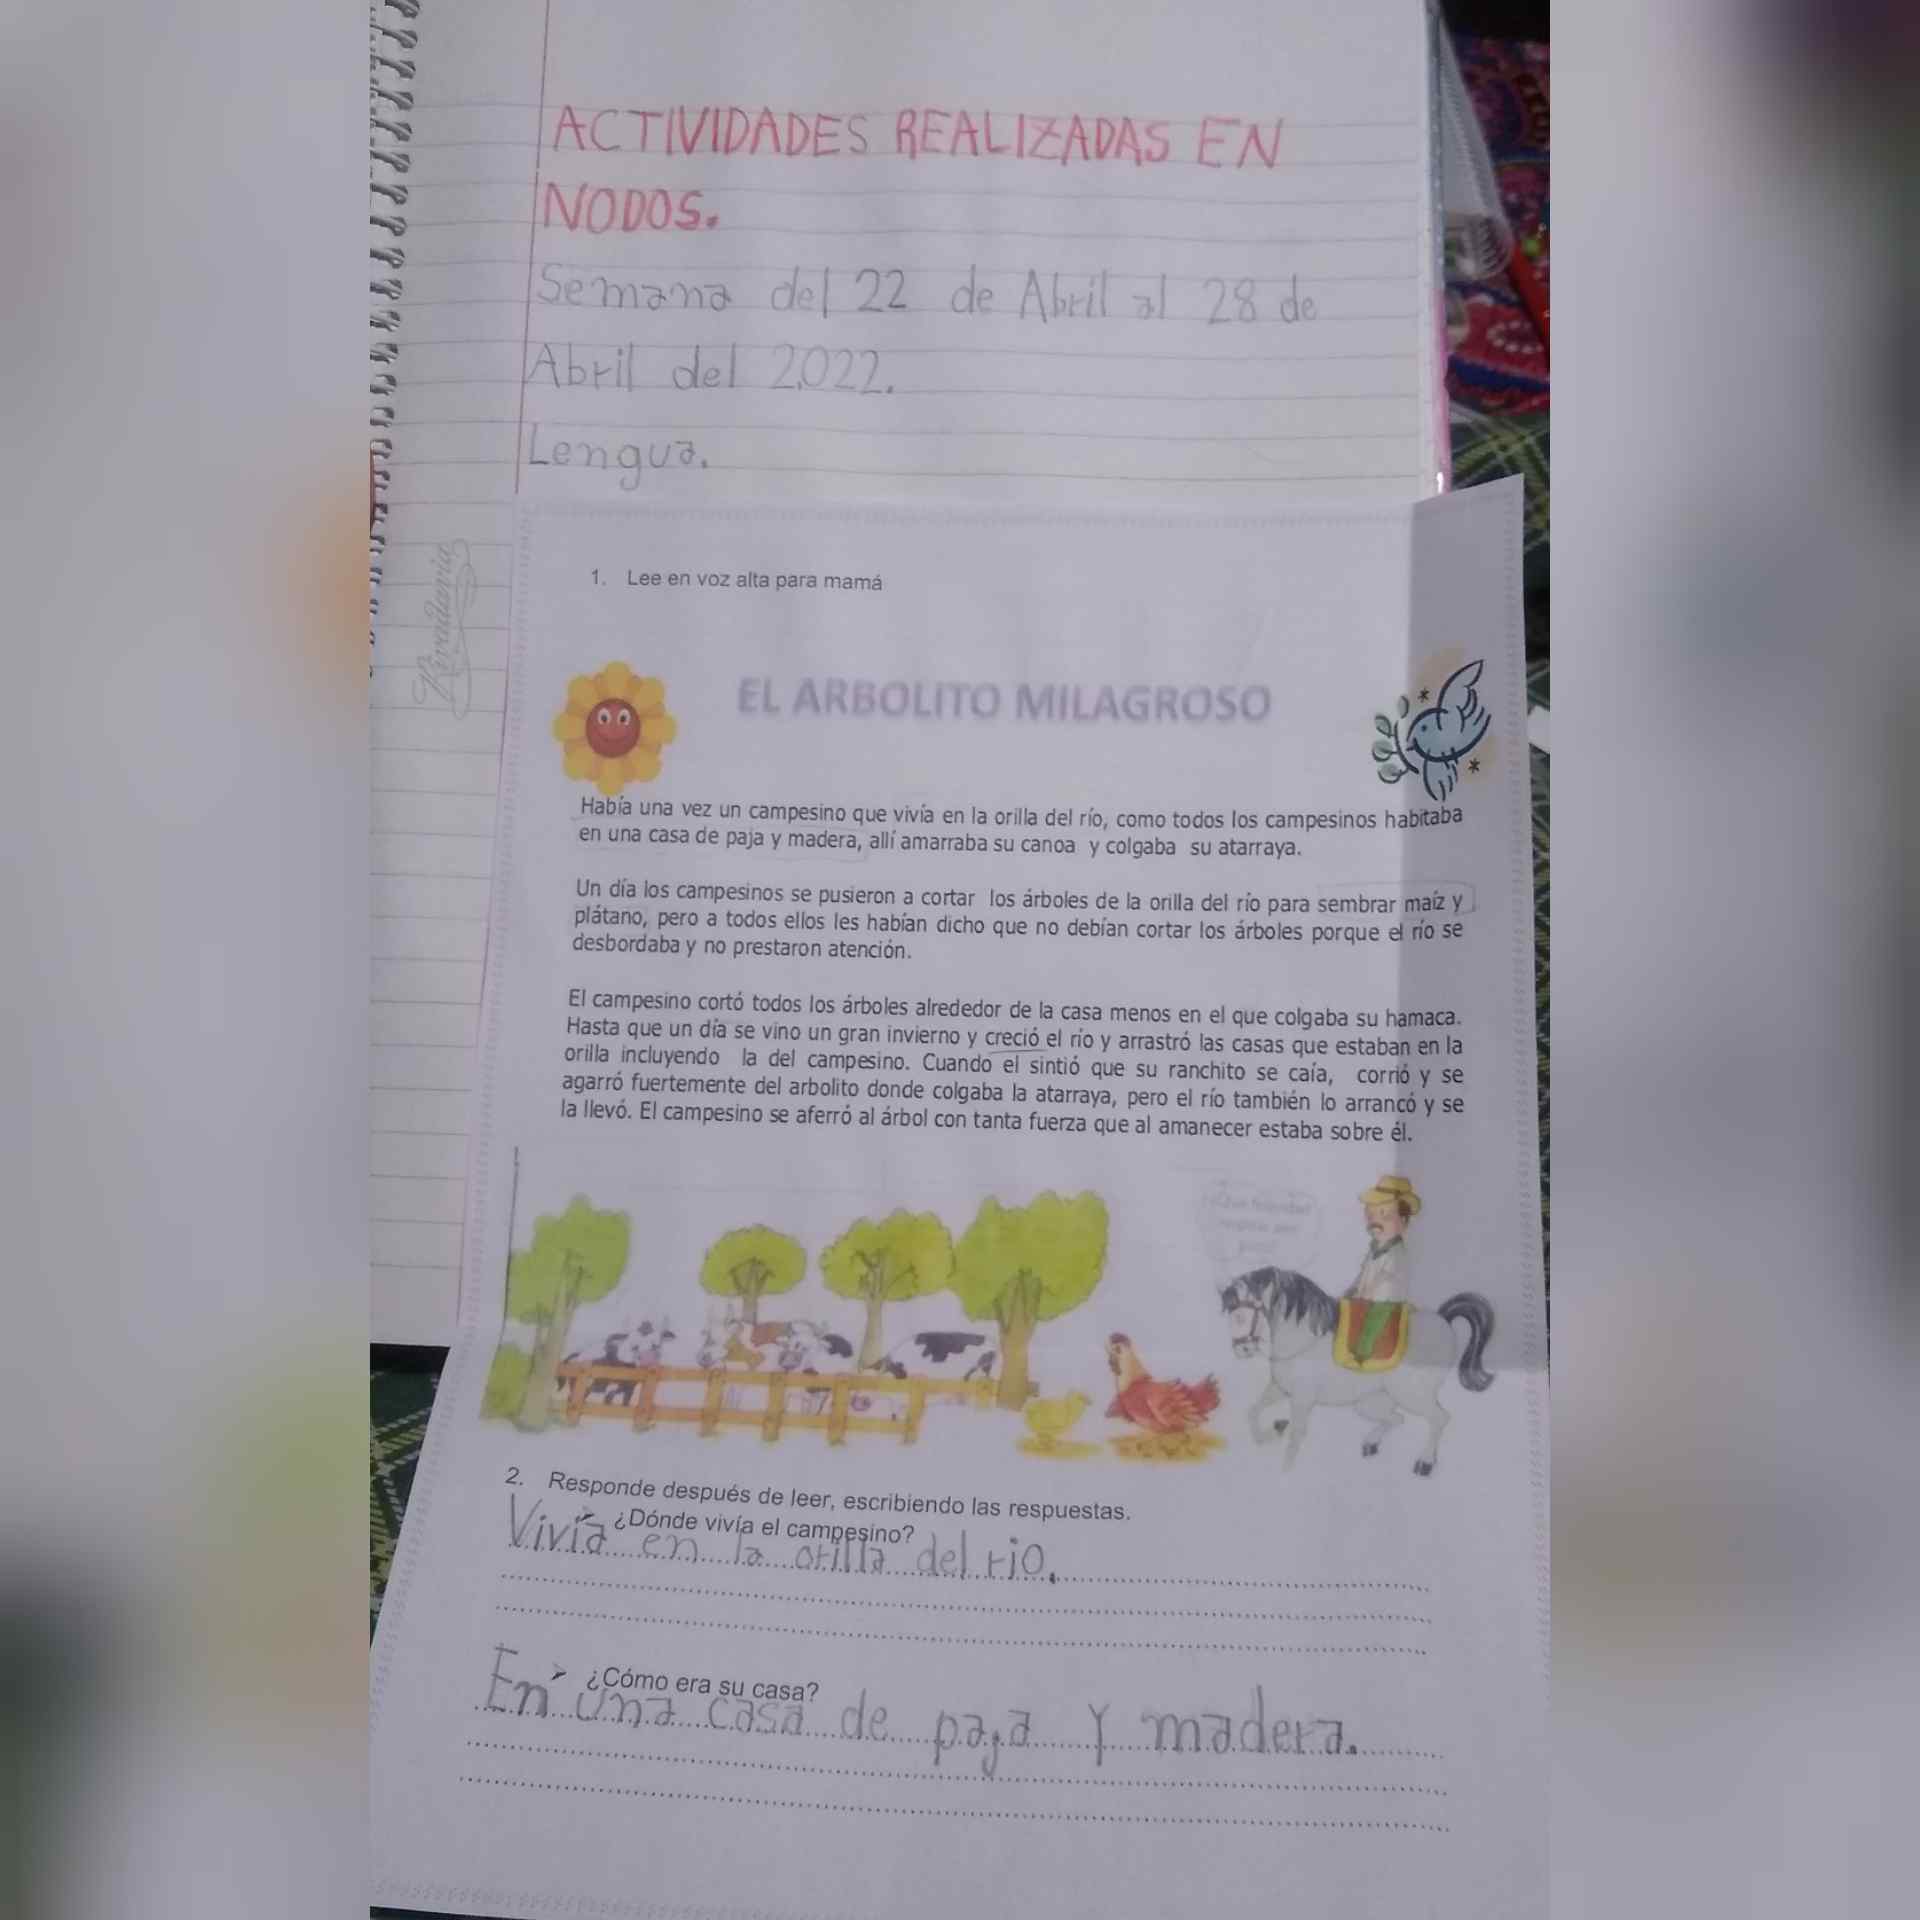 ACTIVIDADES REALIZADAS EN
NODOS.
Semana del 22 de Abril al 28 de
Abril del 2022.
Lengua.
Rivadavia
1. Lee en voz alta para mamá
EL ARBOLITO MILAGROSO
Había una vez un campesino que vivía en la orilla del río, como todos los campesinos habitaba
en una casa de paja y madera, allí amarraba su canoa y colgaba su atarraya.
Un día los campesinos se pusieron a cortar los árboles de la orilla del río para sembrar maíz y
plátano, pero a todos ellos les habían dicho que no debían cortar los árboles porque el río se
desbordaba y no prestaron atención.
El campesino cortó todos los árboles alrededor de la casa menos en el que colgaba su hamaca.
Hasta que un día se vino un gran invierno y creció el río y arrastró las casas que estaban en la
orilla incluyendo la del campesino. Cuando el sintió que su ranchito se caía, corrió y se
agarró fuertemente del arbolito donde colgaba la atarraya, pero el río también lo arrancó y se
la llevó. El campesino se aferró al árbol con tanta fuerza que al amanecer estaba sobre él.
2. Responde después de leer, escribiendo las respuestas.
➢ ¿Dónde vivía el campesino?
Vivía en la orilla del rio.
➢ ¿Cómo era su casa?
En una casa de paja y madera.